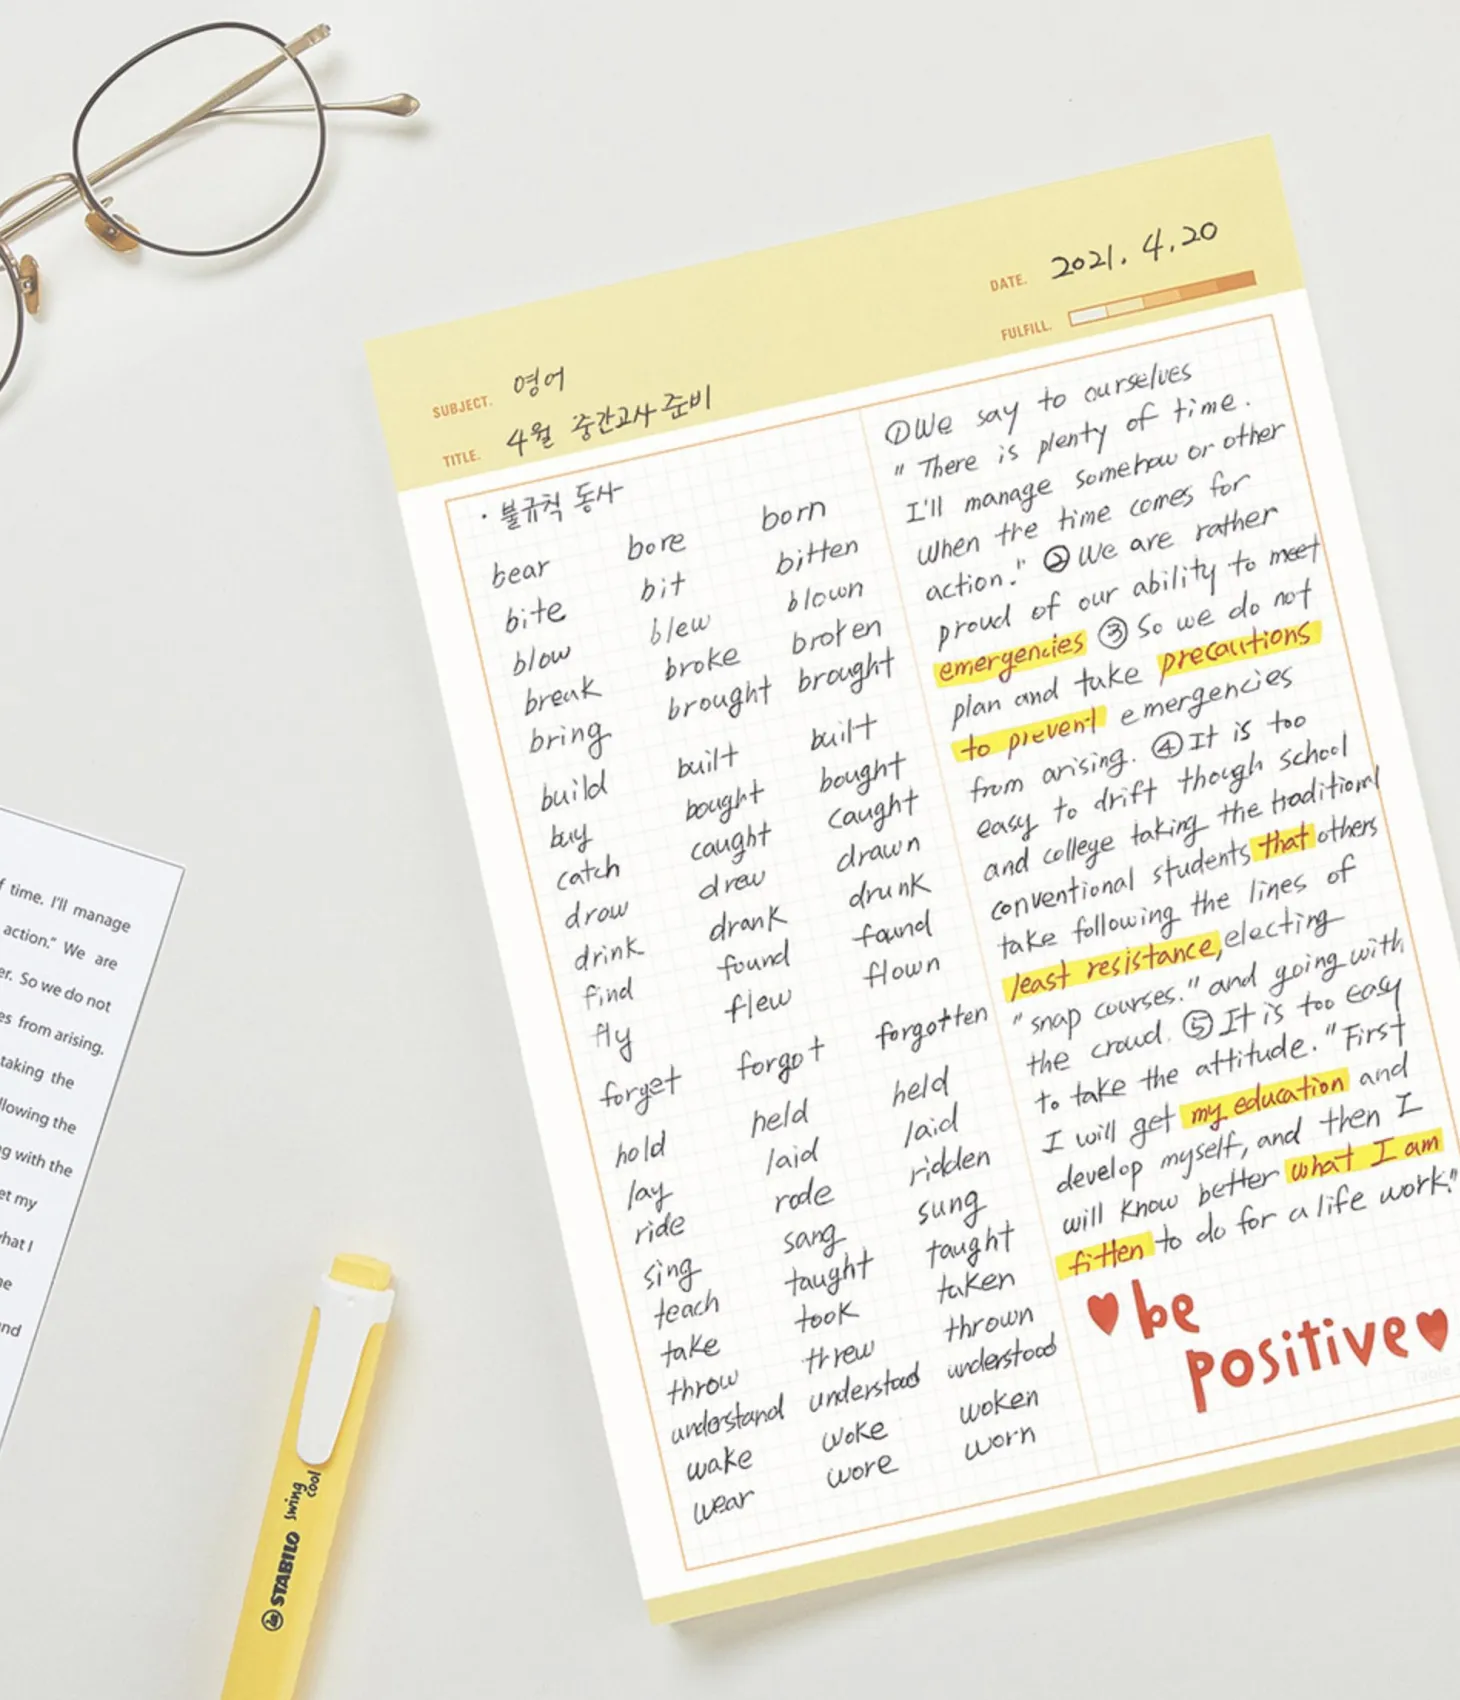 DATE. 2021. 4. 20
FULFILL.
SUBJECT. 영어
TITLE. 4월 중간고사 준비
· 불규칙 동사
bear bore born
bite bit bitten
blow blew blown
break broke broken
bring brought brought
build built built
buy bought bought
catch caught caught
draw drew drawn
drink drank drunk
find found found
fly flew flown
forget forgot forgotten
hold held held
lay laid laid
ride rode ridden
sing sang sung
teach taught taught
take took taken
throw threw thrown
understand understood understood
wake woke woken
wear wore worn
① We say to ourselves
" There is plenty of time.
I'll manage somehow or other
when the time comes for
action." ② We are rather
proud of our ability to meet
emergencies ③ So we do not
plan and take precautions
to prevent emergencies
from arising. ④ It is too
easy to drift though school
and college taking the traditional
conventional students that others
take following the lines of
least resistance, electing
"snap courses." and going with
the crowd. ⑤ It is too easy
to take the attitude. "First
I will get my education and
develop myself, and then I
will know better what I am
fitten to do for a life work."
be
positive
f time. I'll manage
action." We are
er. So we do not
es from arising.
taking the
llowing the
ng with the
et my
what I
ne
nd
STABILO swing cool